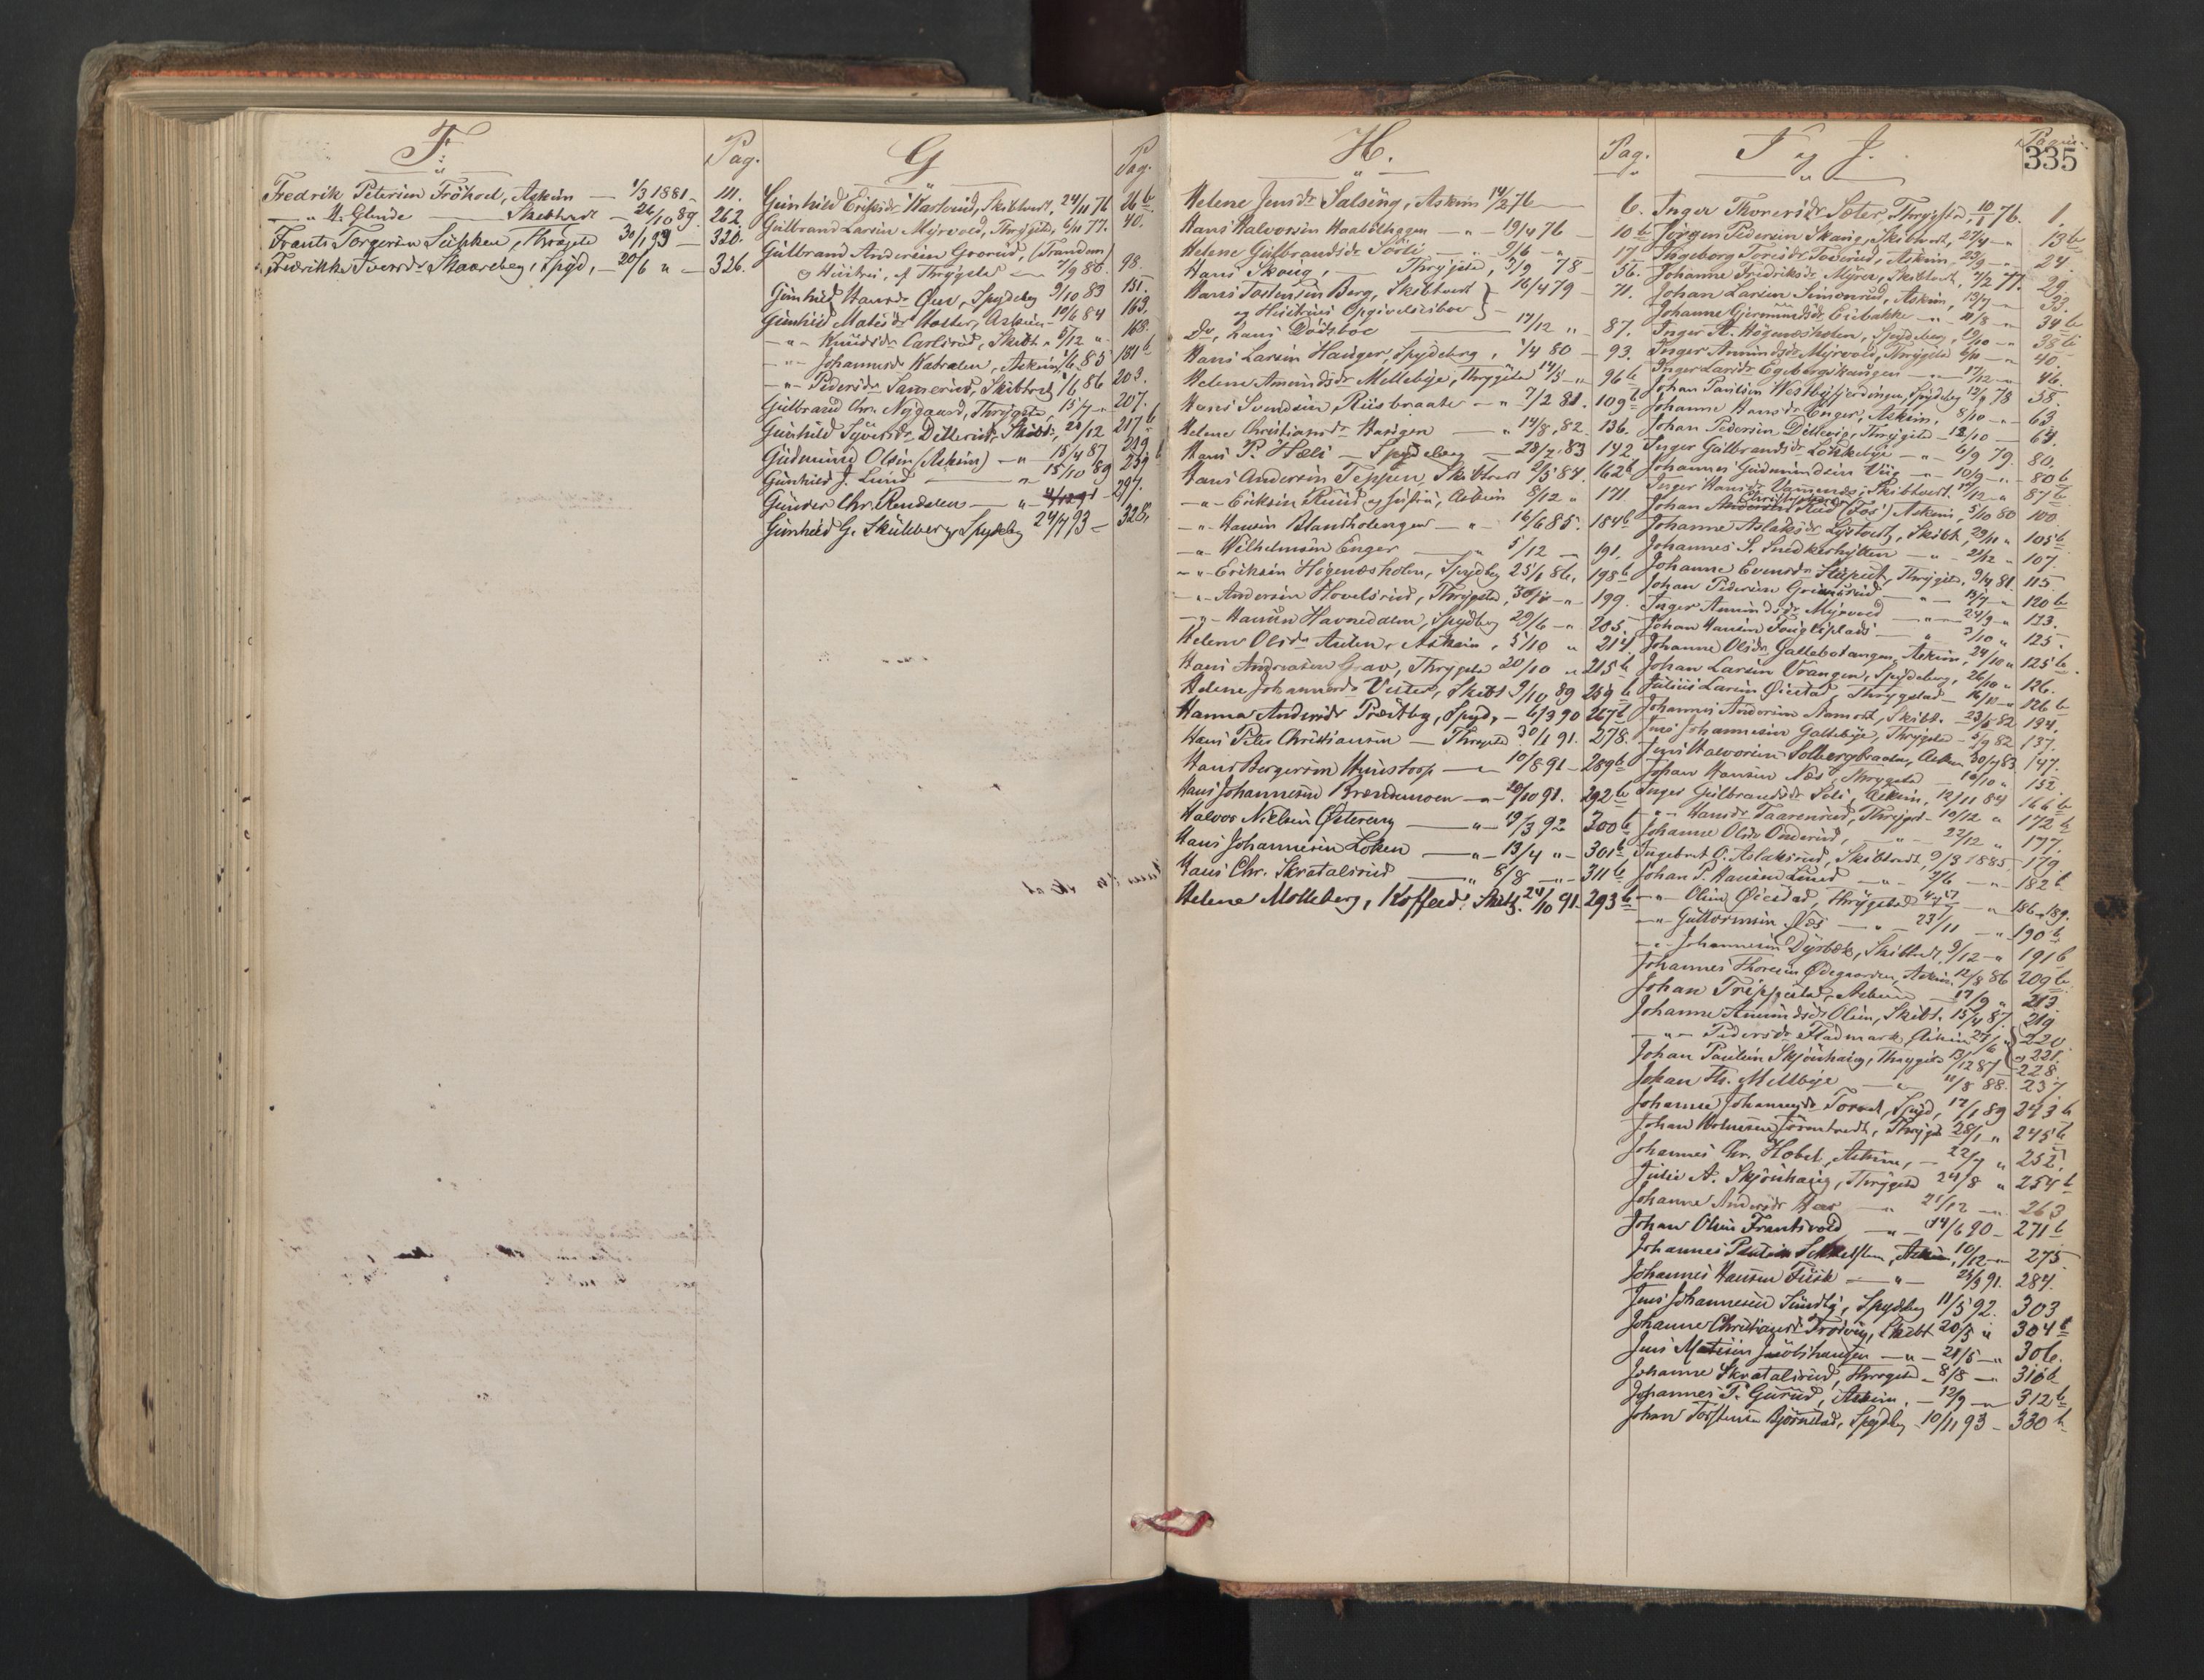 F.
Pag.
Fredrik Petersen Fröhol, Askim — 1/3 1881 - 111.
— " — H. Glende — Skibtvedt — 26/10 89. 262.
Frants Torgersen Lühken, Thrøgsta 30/1 93 — 320.
Fredrikke Iversdr Skaareberg, Spyd, — 20/6 " — 326.
G
Pag.
Gunhild Eriksdr Karlsrud, Skibtvedt, 24/11 76 26 b
Gulbrand Larsen Myrvold, Thrygsta, 6/11 77. 40.
Gulbrand Andersen Goorud, (Trandum)
og Hustru, af Thrygsta — 7/9 80. 98.
Gunhild Hansdr Øen, Spydeberg 9/10 83 151.
Gunhild Matisdr Holter, Askim - 10/6 84 163.
— " — Knudsdr Carlsrud, Skibt. 8/12 " 168.
— " — Johannesdr Kabralen, Askim, 1/6 85 181 b
— " — Pedersdr Samerud, Skibtvedt 1/6 86 203.
Gulbrand Chr. Nygaard, Thrygsta, 15/7 — " 207.
Gunhild Syversdr Dillerud, Skibt: 21/12 217 b
Gudmund Olsen (Askim) — " — 15/4 87 219 b
Gunhild J. Lund — " — 15/10 89 259
Gunder Chr. Rendalen — " — 4/12 91 297.
Gunhild G. Skulberg, Spydebg 24/7 93 — 328.
H.
Pag.
Helene Jensdr Salsing, Askim 14/2 76 — 6.
Hans Halvorsen Kaabblhggen — " — 19/4 76 — 10 b
Helene Gulbrandsdr Sörli — 9/6 — " — 17
Hans Skoug, — Thrygsta, 3/9 78 — 56.
Hans Torstensen Berg, Skibtvedt } 16/4 79 — 71.
og Hustrus Opgivelsesbo
Do, hans Dødsbo — 17/12 " 87.
Hans Larsen Hauger, Spydeberg, 1/4 80 — 93.
Helene Amundsdr Mellebye, Thrygsta 14/5 — " 96 b
Hans Svendsen Riisbraate — " — 7/2 81. 109 b
Helene Christiansdr Haugen — " 14/8, 82. 136.
Hans P. Hæli — Spydeberg — 28/2 83 142
Hans Andersen Teppen, Skibtvedt 2/5 84. 162 b
— " — Eriksen Ruud og Hustru, Askim 8/12 " 171.
— " — Hansen Blandholengen — " — 16/6 85. 184 b
— " — Wilhelmsen Enger — 5/12 — 191.
— " — Eriksen Högenæsholen, Spydbg 25/1 86, 198 b
— " — Andersen Hovelsrud, Thrygsta, 30/1 — " 199.
— " — Hansen Havnedalen, Spydbg 29/6 — " 205.
Helene Olsdr Aulen, Askim, 5/10 " 214
Hans Andreasen Grav, Thrygsta 20/10 " 215 b
Helene Johannesdr Vister, Skibt 9/10 89 259 b
Hanna Andersdr Præstby, Spyd, — 6/3 90 267 b
Hans Peter Christiansen — Thrygsta 30/1 91. 278.
Hans Bergersen Hunstorp — " 10/8 91 — 289 b
Hans Johannesen Brændemoen — " — 20/10 91. 292 b
Halvor Nielsen Østereng — " — 19/3 92 300 b
Hans Johannesen Loken — " — 13/4 " — 301 b
Hans Chr. Skratalsrud — " 8/8 — " — 311 b
Helene Molleberg, Kofferd: Skibt. 24/10 91. 293 b
I og J.
Pagina.
335
Inger Thoresdr Sæter, Thrygsta, 10/1 76. 1.
Jörgen Pedersen Skaug, Skibtvedt, 27/4 — " 13 b
Ingeborg Toresdr Toverud, Askim, 23/9 — " 24.
Johanne Fredriksdr Myrer, Skibtvedt, 7/2 77. 29.
Johan Larsen Simonrud, Askim, 13/4 — " 33.
Johanne Gjermundsdr Eriebakke — " 11/8 — " 34 b
Inger A. Högenæsholen, Spydeberg, 12/10 — " 38 b
Inger Amundsdr Myrvold, Thrygsta 6/11 — " 40.
Inger Larsdr Egebergshaugen — " 17/12 — " 46.
Johan Paulsen Westbyfjerdingen, Spydebg 12/9 78 58.
Johanne Hansdr Enger, Askim, 8/10 — " 63
Johan Pedersen Dillevig, Thrygsta — 12/10 — 64.
Inger Gulbrandsdr Löhkebye — " 6/9 79. 80.
Johannes Gudmundsen Viig — " 10/9 — " 80 b
Inger Hansdr Skibtvedt. 17/12 — " 87 b
Johan Christophersen Rud (Fos) Askim, 5/10 80 100
Johanne Aslaksdr Lystvedt, Skibt. 29/11 " 105 b
Johannes S. Snedkerhytten — " 21/12 " 107.
Johanne Evensdr Sluput, Thrygsta, 9/4 81. 115.
Johan Pedersen Grimsrud — " 14/7 — " 120 b
Inger Amundsdr Myrvold — " 24/9 — " 123.
Johan Hansen Fougliplads — " 3/10 " 125.
Johanne Olsdr Gallebotangen, Askim, 24/10 " 125 b
Johan Larsen Vrangen, Spydeberg, 26/10 " 126.
Julius Larsen Øiestad, Thrygstad — 16/11 " 126 b
Johannes Andersen Aamodt, Skibt. 23/5 82 134.
Jens Johannesen Gallebye, Thrygsta — 5/9 82 137.
Jens Halvorsen Solbergbraaten, Askim 30/4 83. 147.
Johan Hansen Næs, Thrygsta — 16/10 " 152.
Inger Gulbrandsdr Soli, Askim, 12/11 84 166 b
— " — Hansdr Taarenrud, Thrygst — 10/12 " 172 b
Johanne Olsdr Onderud, — " 22/12 " 177.
Ingebret O. Aslaksrud, Skibtvedt, 9/3 1885, 179
Johan P. Hansen Lund — " 2/6 — " 182 b
— " — Olsen Øiestad, Thrygstad 4 og 17/7 " 186 og 189.
— " — Guttormsen Næs — " 23/11 — " 190 b
— " — Johannesen Dyrbæk, Skibtvedt, 9/12 — " 191 b
Johannes Thoresen Ødegaarden, Askim 12/8 86 209 b
Johan Trippestad, Askim — 17/9 " 213.
Johanne Amundsdr Olsen, Skibt. 15/4 87. 219
— " — Pedersdr Fladmark, Askim 27/6 " 220 og 221.
Johan Paulsen Skjönhaug, Thrygsta 13/12 87 228.
Johan Th. Mellbye — " 11/8 88. 237
Johanne Johannesdr Torvet, Spyd, 17/1 89 243 b
Johan Holmesen Jörentvedt, Thrygst 28/1 " 245 b
Johannes Chr. Hobel, Askim, — 22/7 " 252
Julie A. Skjönhaug, Thrygsta 24/8 " 254 b
Johanne Andersdr Haa — " 21/12 — " 263
Johan Olsen Frantsvold — " 14/6 90 — 271 b
Johannes Paulsen Askim, 10/12 — " 275.
Johannes Hansen Fusk — " — 25/3 91. 284.
Jens Johannesen Sundby, Spydebg 11/5 92. 303
Johanne Christiansdr Trosvig, Skibt 20/5 " 304 b
Jens Matisen Jacobshaugen — " — 21/5 — " 306.
Johanne Skratalsrud, Thrygsta — 8/8 — " 310 b
Johannes P. Gurud, Askim. — 12/9 — " 312 b
Johan Torstensen Bjørnstad, Spydbg — 10/11 93 — 330 b